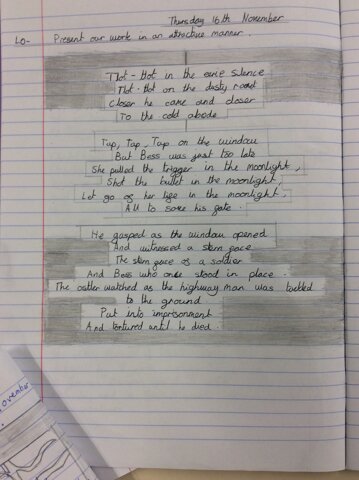 Thursday 16th November
LO- Present our work in an attractive manner.
Tlot-tlot in the eerie silence
Tlot-tlot on the dusty road
Closer he came and closer
To the cold abode
Tap, Tap, Tap on the window
But Bess was just too late
She pulled the trigger in the moonlight,
Shot the bullet in the moonlight
Let go of her life in the moonlight,
All to save his fate.
He gasped as the window opened
And witnessed a stern face
The stern face of a soldier
And Bess who once stood in place.
The ostler watched as the highwayman was tackled
to the ground
Put into imprisonment
And tortured until he died.
ovember